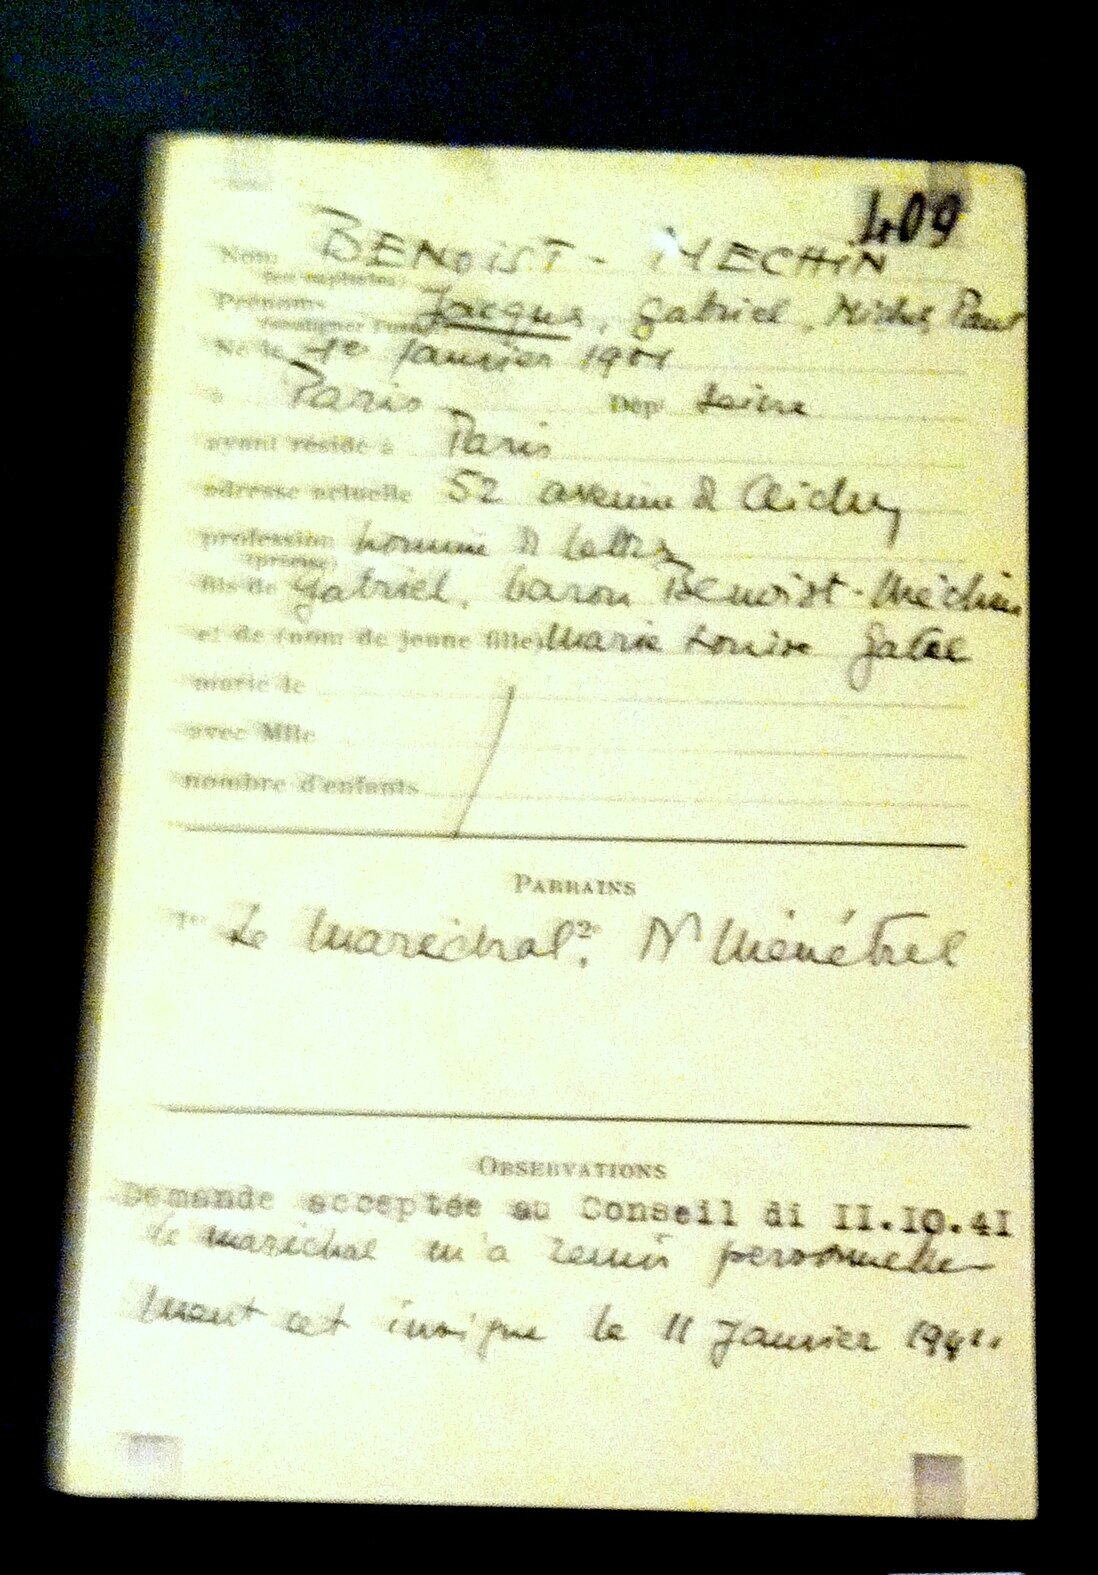 409
Nom BENOIST-MECHIN
(en capitales)
Prénoms Jacques, Gabriel, Michel Paul
(souligner l'usuel)
Né le 1er Janvier 1901
à Paris Dépt Seine
ayant résidé à Paris
adresse actuelle 52 avenue de Clichy
profession homme de lettres
(précise)
fils de Gabriel, baron Benoist-Méchin
et de (nom de jeune fille) Marie Louise
marié le
avec Mlle
nombre d'enfants
PARRAINS
1er Le Maréchal. 2e Dr Ménétrel
OBSERVATIONS
Demande acceptée au Conseil di II.IO.4I
Le maréchal m'a remis personnelle-
ment cet insigne le 11 Janvier